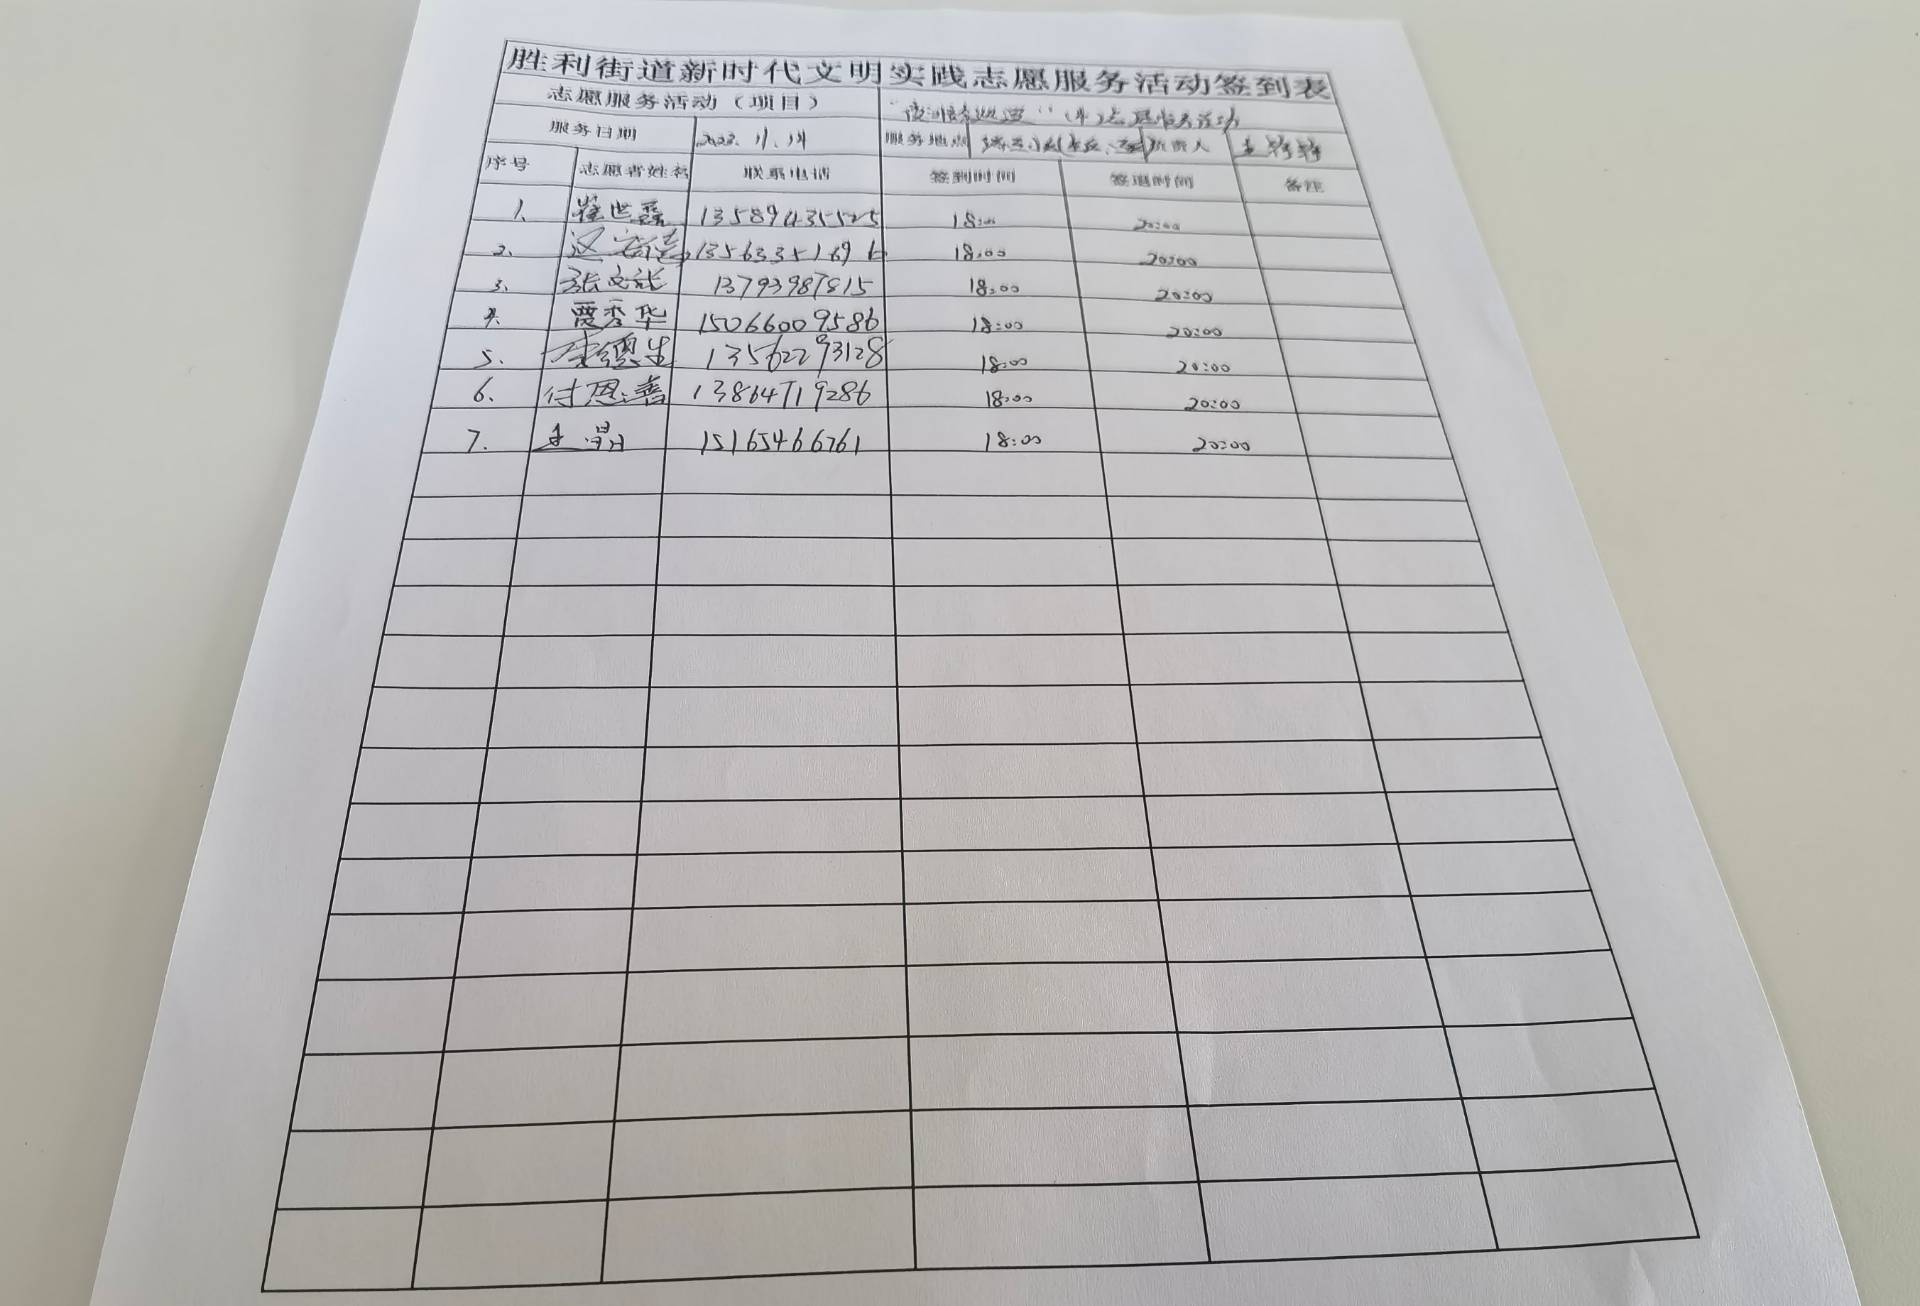 胜利街道新时代文明实践志愿服务活动签到表
志愿服务活动（项目）
服务日期 2023.11.14 服务地点 负责人
序号 志愿者姓名 联系电话 签到时间 签退时间 备注
1、 崔世露 13589435525 18:00 20:00
2、 1356335169 18:00 20:00
3、 张文龙 13793987815 18:00 20:00
4. 贾秀华 15066009586 18:00 20:00
5、 李德生 13562293128 18:00 20:00
6、 付恩善 13864719286 18:00 20:00
7. 王晶 15165466761 18:00 20:00